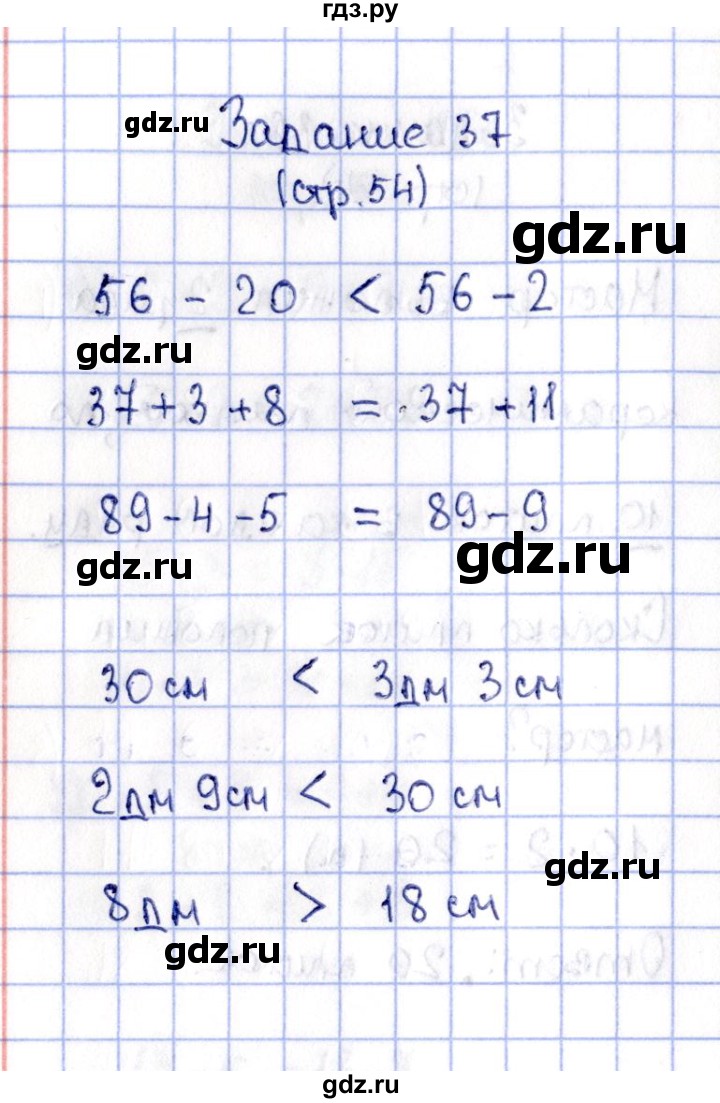 гдз.ру
gdz.ru
Задание 37
(стр. 54)
gdz.ru
56 - 20 < 56 - 2
gdz.ru
37 + 3 + 8 = 37 + 11
89 - 4 - 5 = 89 - 9
gdz.ru
gdz.ru
30 см < 3 дм 3 см
2 дм 9 см < 30 см
gdz.ru
8 дм > 18 см
gdz.ru
gdz.ru